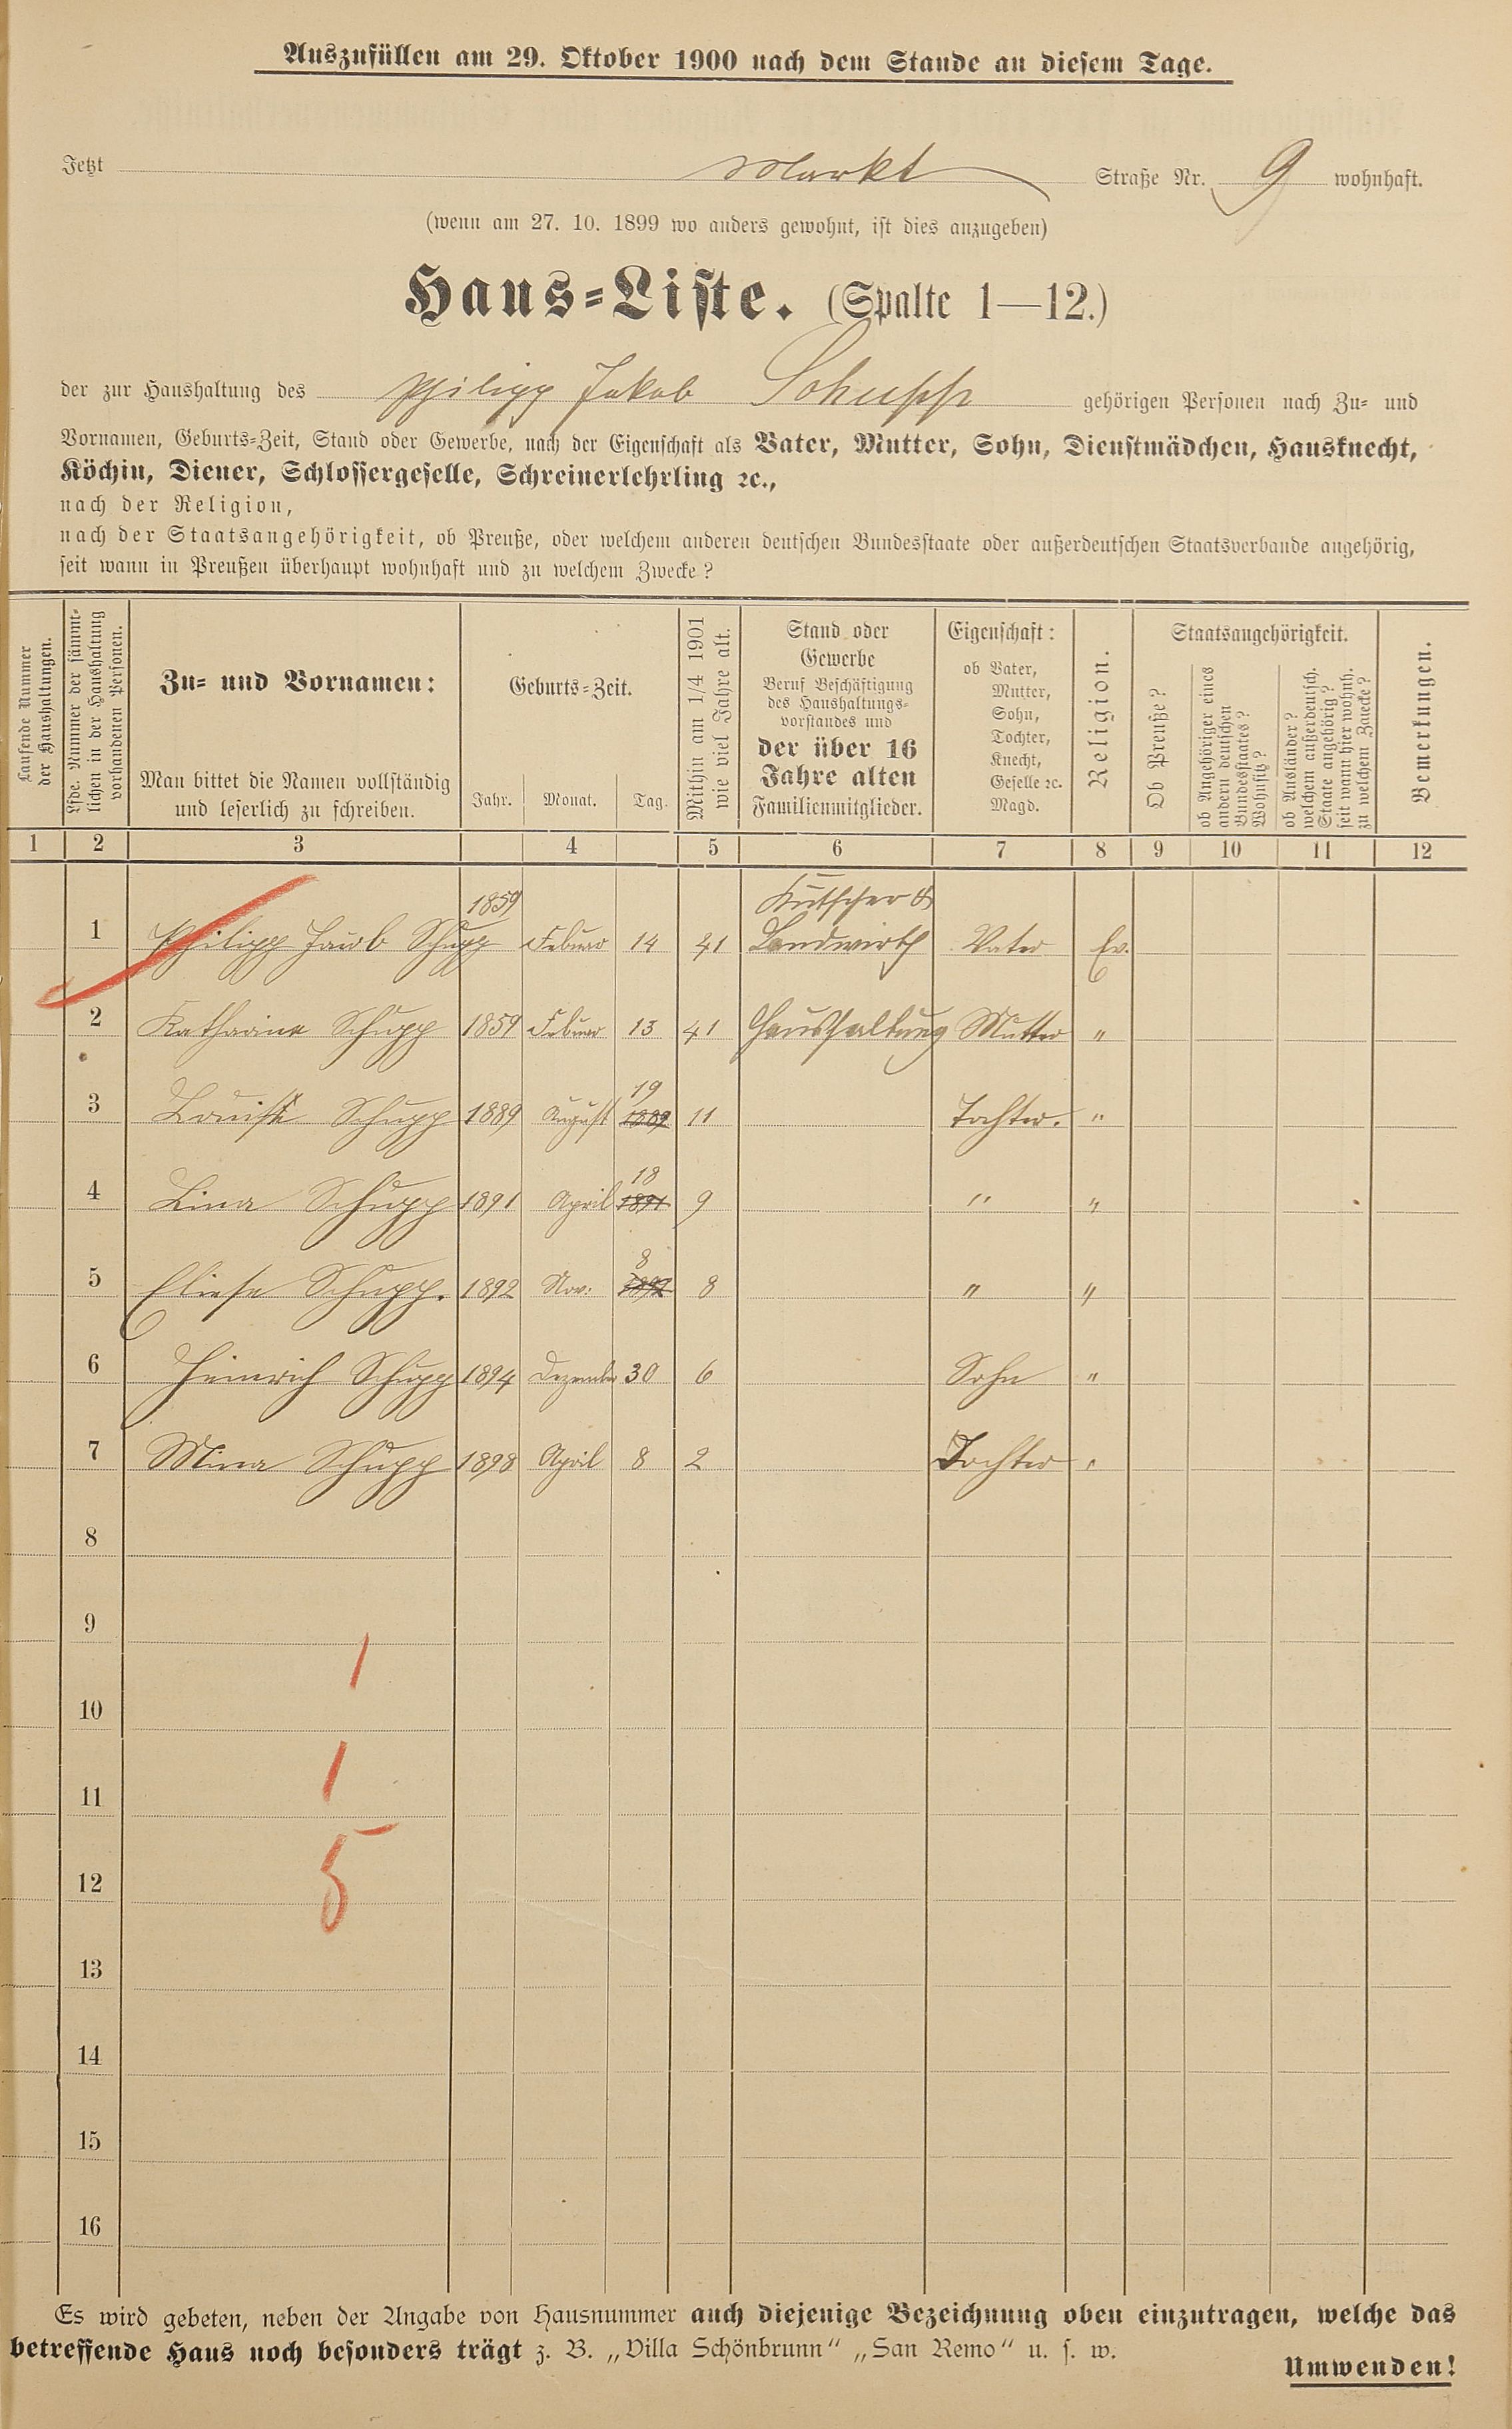 Auszufüllen am 29. Oktober 1900 nach dem Stande an diesem Tage.
Jetzt Markt Straße Nr. 9 wohnhaft.
(wenn am 27. 10. 1899 wo anders gewohnt, ist dies anzugeben)
Haus-Liste. (Spalte 1—12.)
der zur Haushaltung des Philipp Jakob Schupp gehörigen Personen nach Zu- und
Vornamen, Geburts-Zeit, Stand oder Gewerbe, nach der Eigenschaft als Vater, Mutter, Sohn, Dienstmädchen, Hausknecht,
Köchin, Diener, Schlossergeselle, Schreinerlehrling ꝛc.,
nach der Religion,
nach der Staatsangehörigkeit, ob Preuße, oder welchem anderen deutschen Bundesstaate oder außerdeutschen Staatsverbande angehörig,
seit wann in Preußen überhaupt wohnhaft und zu welchem Zwecke?
Laufende Nummer
der Haushaltungen.
Lfde. Nummer der sämmt-
lichen in der Haushaltung
vorhandenen Personen.
Zu- und Vornamen:
Man bittet die Namen vollständig
und leserlich zu schreiben.
Geburts-Zeit.
Jahr. Monat. Tag.
Mithin am 1/4 1901
wie viel Jahre alt.
Stand oder
Gewerbe
Beruf Beschäftigung
des Haushaltungs-
vorstandes und
der über 16
Jahre alten
Familienmitglieder.
Eigenschaft:
ob Vater,
Mutter,
Sohn,
Tochter,
Knecht,
Geselle ꝛc.
Magd.
Religion.
Staatsangehörigkeit.
Ob Preuße?
ob Angehöriger eines
andern deutschen
Bundesstaates?
Wohnsitz?
ob Ausländer?
welchem außerdeutsch.
Staate angehörig?
seit wann hier wohnh.
zu welchem Zwecke?
Bemerkungen.
1 2 3 4 5 6 7 8 9 10 11 12
1859 Kutscher &
1 Philipp Jacob Schupp Februar 14 41 Landwirth Vater Ev.
2 Katharina Schupp 1859 Februar 13 41 Haushaltung Mutter "
19
3 Louise Schupp 1889 August 1889 11 Tochter. "
18
4 Lina Schupp 1891 April 1891 9 " "
8
5 Eliese Schupp. 1892 Nov: 1892 8 " "
6 Heinrich Schupp 1894 Dezember 30 6 Sohn "
7 Mina Schupp 1898 April 8 2 Tochter "
8
9
1
10
1
11
5
12
13
14
15
16
Es wird gebeten, neben der Angabe von Hausnummer auch diejenige Bezeichnung oben einzutragen, welche das
betreffende Haus noch besonders trägt z. B. „Villa Schönbrunn" „San Remo" u. s. w.
Umwenden!